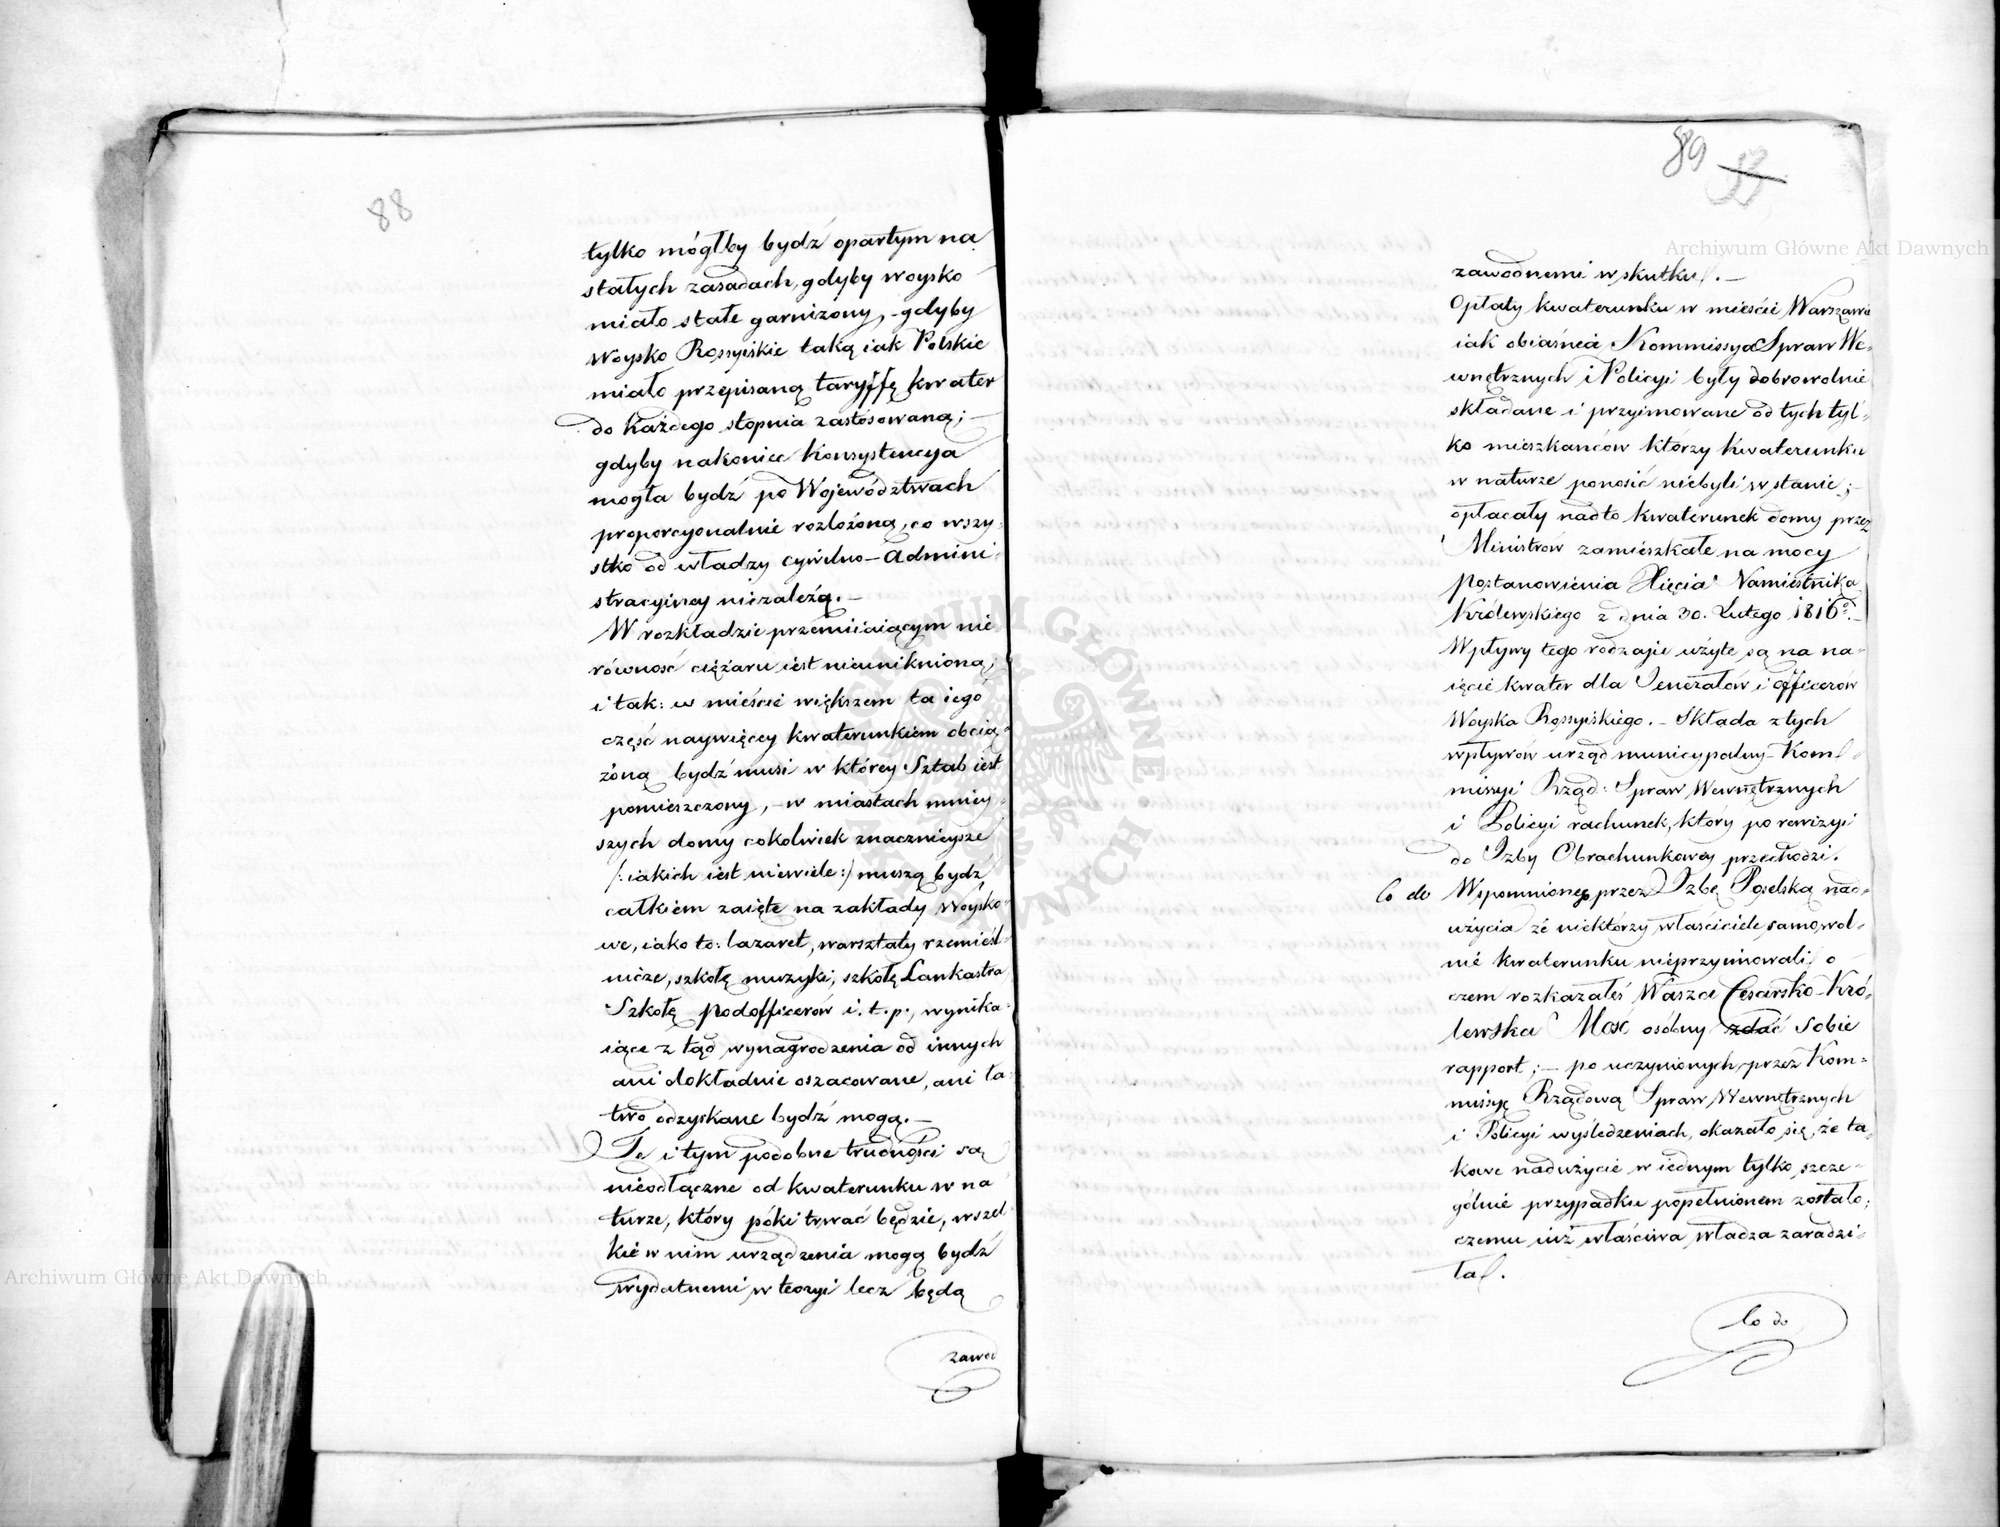 88
tylko mógłby bydź opartym na
stałych zasadach, gdyby woysko
miało stałe garnizony, - gdyby
woysko Rossyiskie taką iak Polskie
miało przepisaną taryffę kwater
do każdego stopnia zastosowaną; -
gdyby nakoniec konsystencya
mogła bydź po Województwach
proporcyonalnie rozłożoną, co wszy-
stko od władzy cywilno - admini-
stracyiney niezależą. -
W rozkładzie przemiiaiącym nie
równość ciężaru iest nieunikniona;
i tak: w mieście większem ta iego
część naywięcey kwaterunkiem obcią-
żoną bydź musi w którey Sztab iest
pomieszczony, - w miastach mniey-
szych domy cokolwiek znacznieysze
/: iakich iest niewiele :/ muszą bydź
całkiem zaięte na zakłady Woysko-
we, iako to: lazaret, warsztaty rzemieśl-
nicze, szkołę muzyki, szkołę Lankastra
Szkołę podofficerów i. t. p., wynika-
iące z tąd wynagrodzenia od innych
ani dokładnie oszacowane, ani ła-
two odzyskane bydź mogą. -
Te i tym podobne trudności są
nieodłączne od kwaterunku w na
turze, który póki trwać będzie, wszel-
kie w nim urządzenia mogą bydź
wydatnemi w teoryi lecz będą
zawod
89
zawodnemi w skutku. -
Opłaty kwaterunku w mieście Warszawie
iak obiaśnia Kommissya Spraw We-
wnętrznych i Policyi były dobrowolnie
składane i przyimowane od tych tyl-
ko mieszkańców którzy kwaterunku
w naturze ponosić niebyli w stanie; -
opłacały nadto kwaterunek domy przez
Ministrów zamieszkałe na mocy
postanowienia Xięcia Namiestnika
Królewskiego z dnia 30. Lutego 1816 r. -
Wpływy tego rodzaju użyte są na na-
ięcie kwater dla Jenerałów i officerów
Woyska Rossyiskiego. - Składa z tych
wpływów urząd municypalny Kom-
missyi Rząd: Spraw Wewnętrznych
i Policyi rachunek, który po rewizyi
do Izby Obrachunkowey przechodzi.
Co do Wspomnionego przez Izbę Poselską nad-
użycia że niektórzy własciciele samowol-
nie kwaterunku nieprzyimowali, o
czem rozkazałeś Wasza Cesarsko - Kró-
lewska Mość osóbny zdać sobie
rapport; - po uczynionych przez Kom-
missyę Rządową Spraw Wewnętrznych
i Policyi wyśledzeniach, okazało się, że ta-
kowe nadużycie w iednym tylko, szcze-
gólnie przypadku popełnionem zostało;
czemu iuż właściwa władza zaradzi-
ła.
Co do
Archiwum Główne Akt Dawnych
Archiwum Główne Akt Dawnych
ARCHIWUM GŁÓWNE AKT DAWNYCH